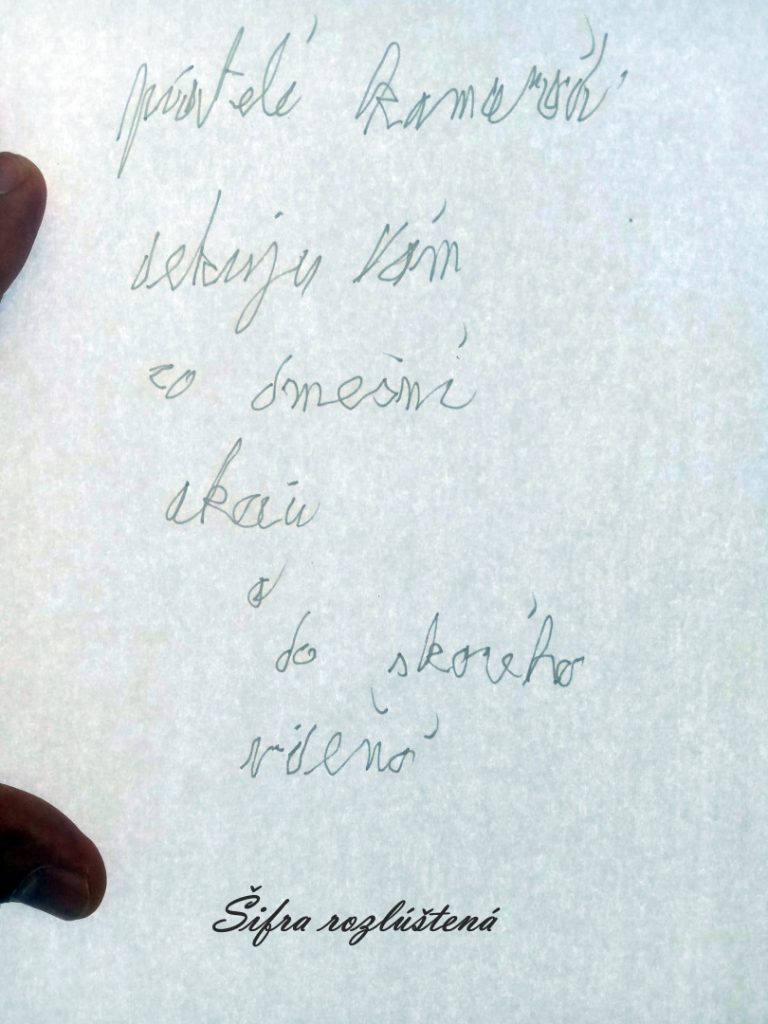 přátelé kamarádi
děkuju Vám
za dnešní
akci
a
do skorého
videnā
Šifra rozlúštená